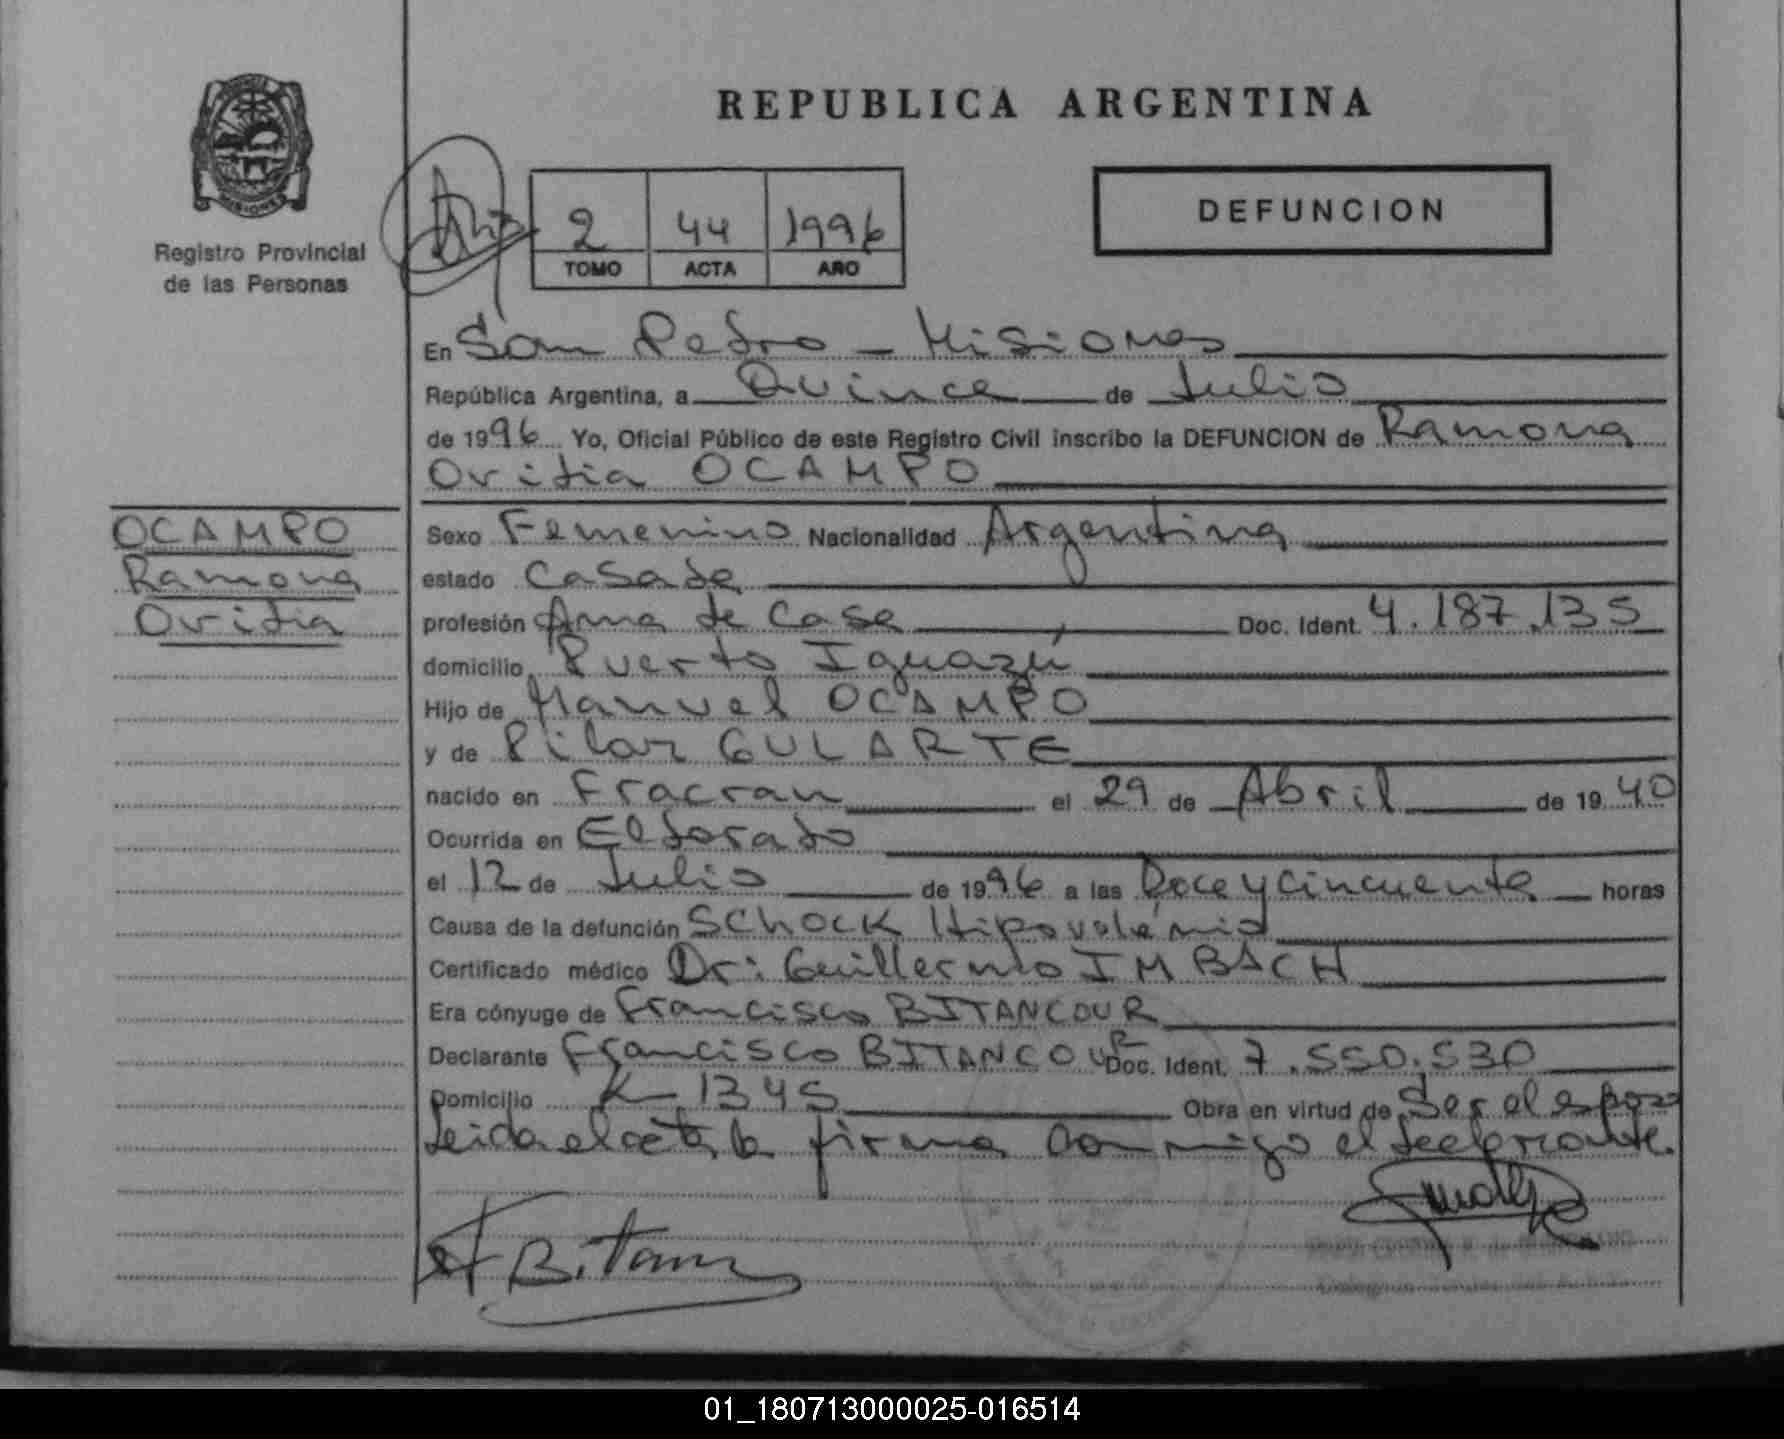 REPUBLICA ARGENTINA
Registro Provincial
de las Personas
MISIONES
2 44 1996
TOMO ACTA AÑO
DEFUNCION
En San Pedro - Misiones
República Argentina, a Quince de Julio
de 1996 Yo, Oficial Público de este Registro Civil inscribo la DEFUNCION de Ramona
Ovidia OCAMPO
OCAMPO
Ramona
Ovidia
Sexo Femenino Nacionalidad Argentina
estado Casada
profesión Ama de Casa, Doc. Ident. 4.187.135
domicilio Puerto Iguazú
Hijo de Manuel OCAMPO
y de Pilar GULARTE
nacido en Fracran el 29 de Abril de 1940
Ocurrida en Eldorado
el 12 de Julio de 1996 a las Doce y cincuenta horas
Causa de la defunción SChOCK Hipovolémico
Certificado médico Dr: Guillermo IMBACH
Era cónyuge de Francisco BITANCOUR
Declarante Francisco BITANCOUR Doc. Ident. 7.550.530
Domicilio K 1345 Obra en virtud de Ser el esposo
Leida el acta la firma conmigo el declarante.
01_180713000025-016514